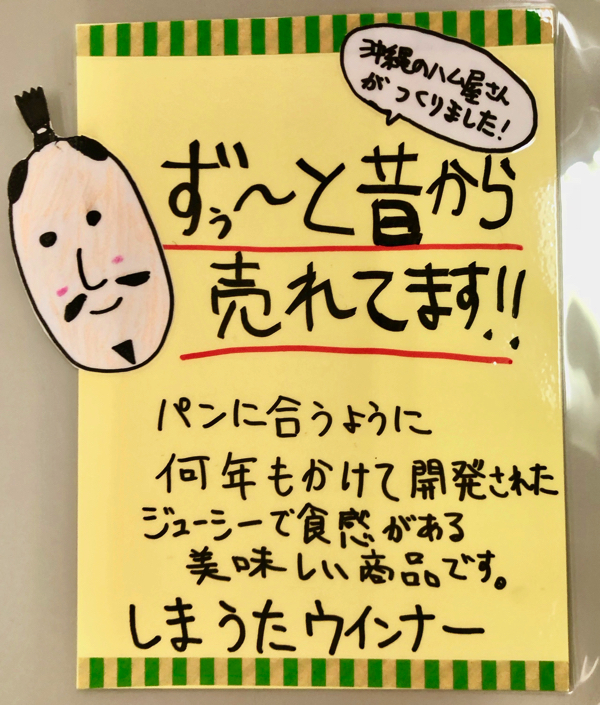 沖縄のハム屋さん
がつくりました!
ずぅ〜と昔から
売れてます!!
パンに合うように
何年もかけて開発された
ジューシーで食感がある
美味しい商品です。
しまうたウインナー